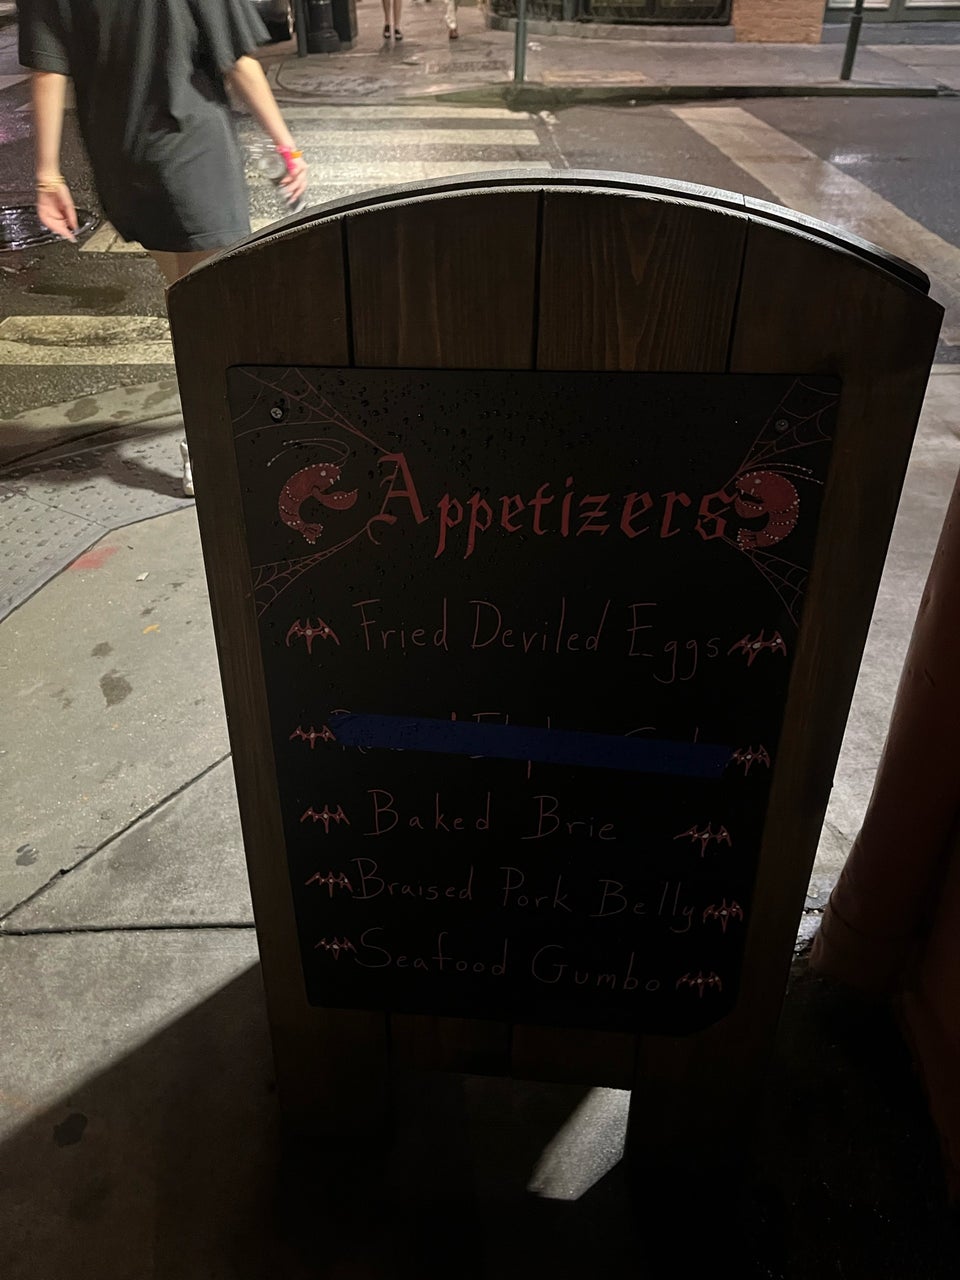 Appetizers
Fried Deviled Eggs
Baked Brie
Braised Pork Belly
Seafood Gumbo